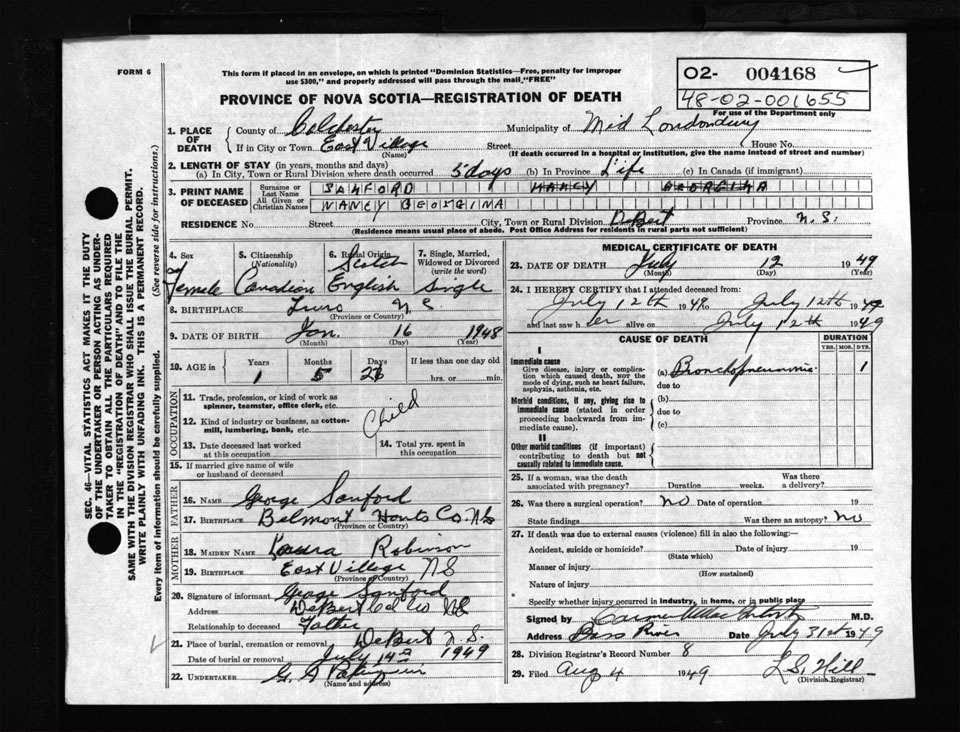 FORM 6
This form if placed in an envelope, on which is printed "Dominion Statistics—Free, penalty for improper
use $300," and properly addressed will pass through the mail, "FREE"
PROVINCE OF NOVA SCOTIA—REGISTRATION OF DEATH
02- 004168
48-02-001655
For use of the Department only
1. PLACE OF DEATH
County of Colchester Municipality of Mid Londonderry
If in City or Town East Village Street House No.
(Name) (If death occurred in a hospital or institution, give the name instead of street and number)
2. LENGTH OF STAY (in years, months and days)
(a) In City, Town or Rural Division where death occurred 5 days (b) In Province Life (c) In Canada (if immigrant)
3. PRINT NAME OF DECEASED
Surname or Last Name SANFORD NANCY GEORGINA
All Given or Christian Names NANCY GEORGINA
RESIDENCE No. Street City, Town or Rural Division DeBert Province N.S.
(Residence means usual place of abode. Post Office Address for residents in rural parts not sufficient)
4. Sex Female
5. Citizenship (Nationality) Canadian
6. Racial Origin Scotch English
7. Single, Married, Widowed or Divorced (write the word) Single
8. BIRTHPLACE Truro N.S.
(Province or Country)
9. DATE OF BIRTH Jan. 16 1948
(Month) (Day) (Year)
10. AGE in Years Months Days If less than one day old
1 5 26 hrs. or min.
OCCUPATION
11. Trade, profession, or kind of work as spinner, teamster, office clerk, etc. Child
12. Kind of industry or business, as cotton-mill, lumbering, bank, etc.
13. Date deceased last worked at this occupation
14. Total yrs. spent in this occupation
15. If married give name of wife or husband of deceased
FATHER
16. NAME George Sanford
17. BIRTHPLACE Belmont Hants Co. N.S.
(Province or Country)
MOTHER
18. MAIDEN NAME Robinson
19. BIRTHPLACE East Village N.S.
(Province or Country)
20. Signature of informant George Sanford
Address DeBert Col Co N.S.
Relationship to deceased Father
21. Place of burial, cremation or removal DeBert N.S.
Date of burial or removal July 14 1949
22. UNDERTAKER G. A.
(Name and address)
MEDICAL CERTIFICATE OF DEATH
23. DATE OF DEATH July 12 1949
(Month) (Day) (Year)
24. I HEREBY CERTIFY that I attended deceased from:
July 12th 1949 July 12th 1949
and last saw her alive on July 12th 1949
CAUSE OF DEATH DURATION
YRS. MOS. DYS.
I
Immediate cause
Give disease, injury or complication which caused death, nor the mode of dying, such as heart failure, asphyxia, asthenia, etc.
(a) Bronchopneumonia 1
due to
Morbid conditions, if any, giving rise to immediate cause (stated in order proceeding backwards from immediate cause).
(b)
due to
(c)
II
Other morbid conditions (if important) contributing to death but not causally related to immediate cause.
25. If a woman, was the death associated with pregnancy? Duration weeks. Was there a delivery?
26. Was there a surgical operation? no Date of operation 19
State findings Was there an autopsy? no
27. If death was due to external causes (violence) fill in also the following:—
Accident, suicide or homicide? Date of injury 19
(State which)
Manner of injury
(How sustained)
Nature of injury
Specify whether injury occurred in industry, in home, or in public place
Signed by M.D.
Address Bass River Date July 31st 1949
28. Division Registrar's Record Number 8
29. Filed Aug 4 1949 L.S. Hill
(Division Registrar)
SEC. 46—VITAL STATISTICS ACT MAKES IT THE DUTY
OF THE UNDERTAKER OR PERSON ACTING AS UNDERTAKER
TO OBTAIN ALL THE PARTICULARS REQUIRED
IN THE "REGISTRATION OF DEATH" AND TO FILE THE
SAME WITH THE DIVISION REGISTRAR WHO SHALL ISSUE THE BURIAL PERMIT.
WRITE PLAINLY WITH UNFADING INK. THIS IS A PERMANENT RECORD.
Every item of information should be carefully supplied. (See reverse side for instructions.)